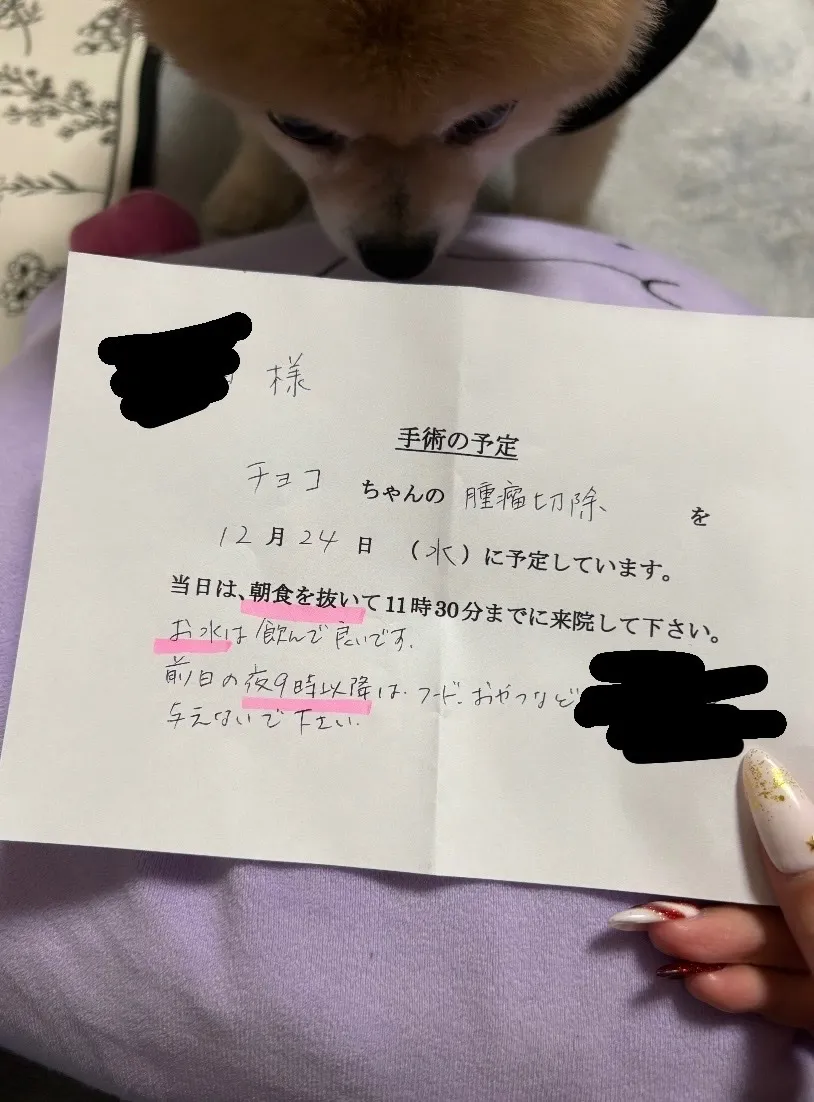 様
手術の予定
チョコ ちゃんの 腫瘤切除 を
12月24日 (水)に予定しています。
当日は、朝食を抜いて11時30分までに来院して下さい。
お水は飲んで良いです。
前日の夜9時以降は、フード、おやつなど
与えないで下さい。